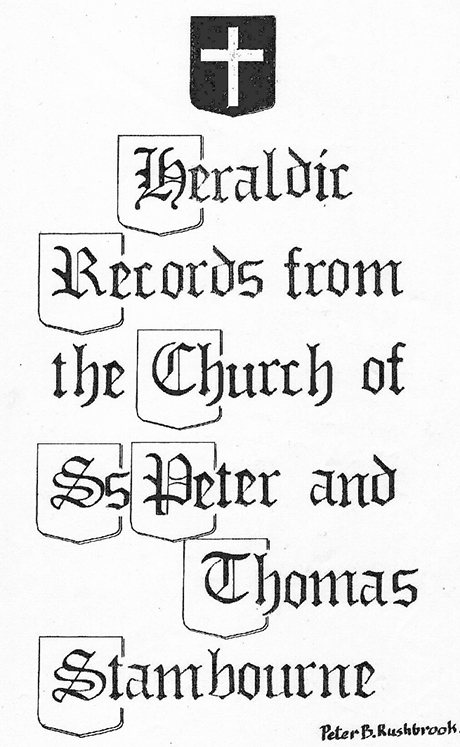 Heraldic
Records from
the Church of
Ss Peter and
Thomas
Stambourne
Peter B. Rushbrook.